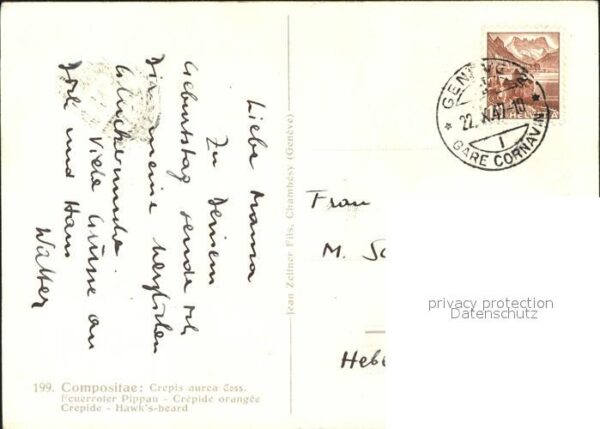 Liebe Mama
Zu Deinem
Geburtstag sende ich
Dir meine herzlichen
Glückwünsche.
Viele Grüsse an
und Hans
Walter
199. Compositae: Crepis aurea Coss.
Feuerroter Pippau - Crépide orangée
Crepide - Hawk's-beard
Jean Zellner Fils, Chambésy (Genève)
HELVETIA
GENÈVE
22.X.42-10
1
GARE CORNAVIN
Frau
M. Sc
Heb
privacy protection
Datenschutz